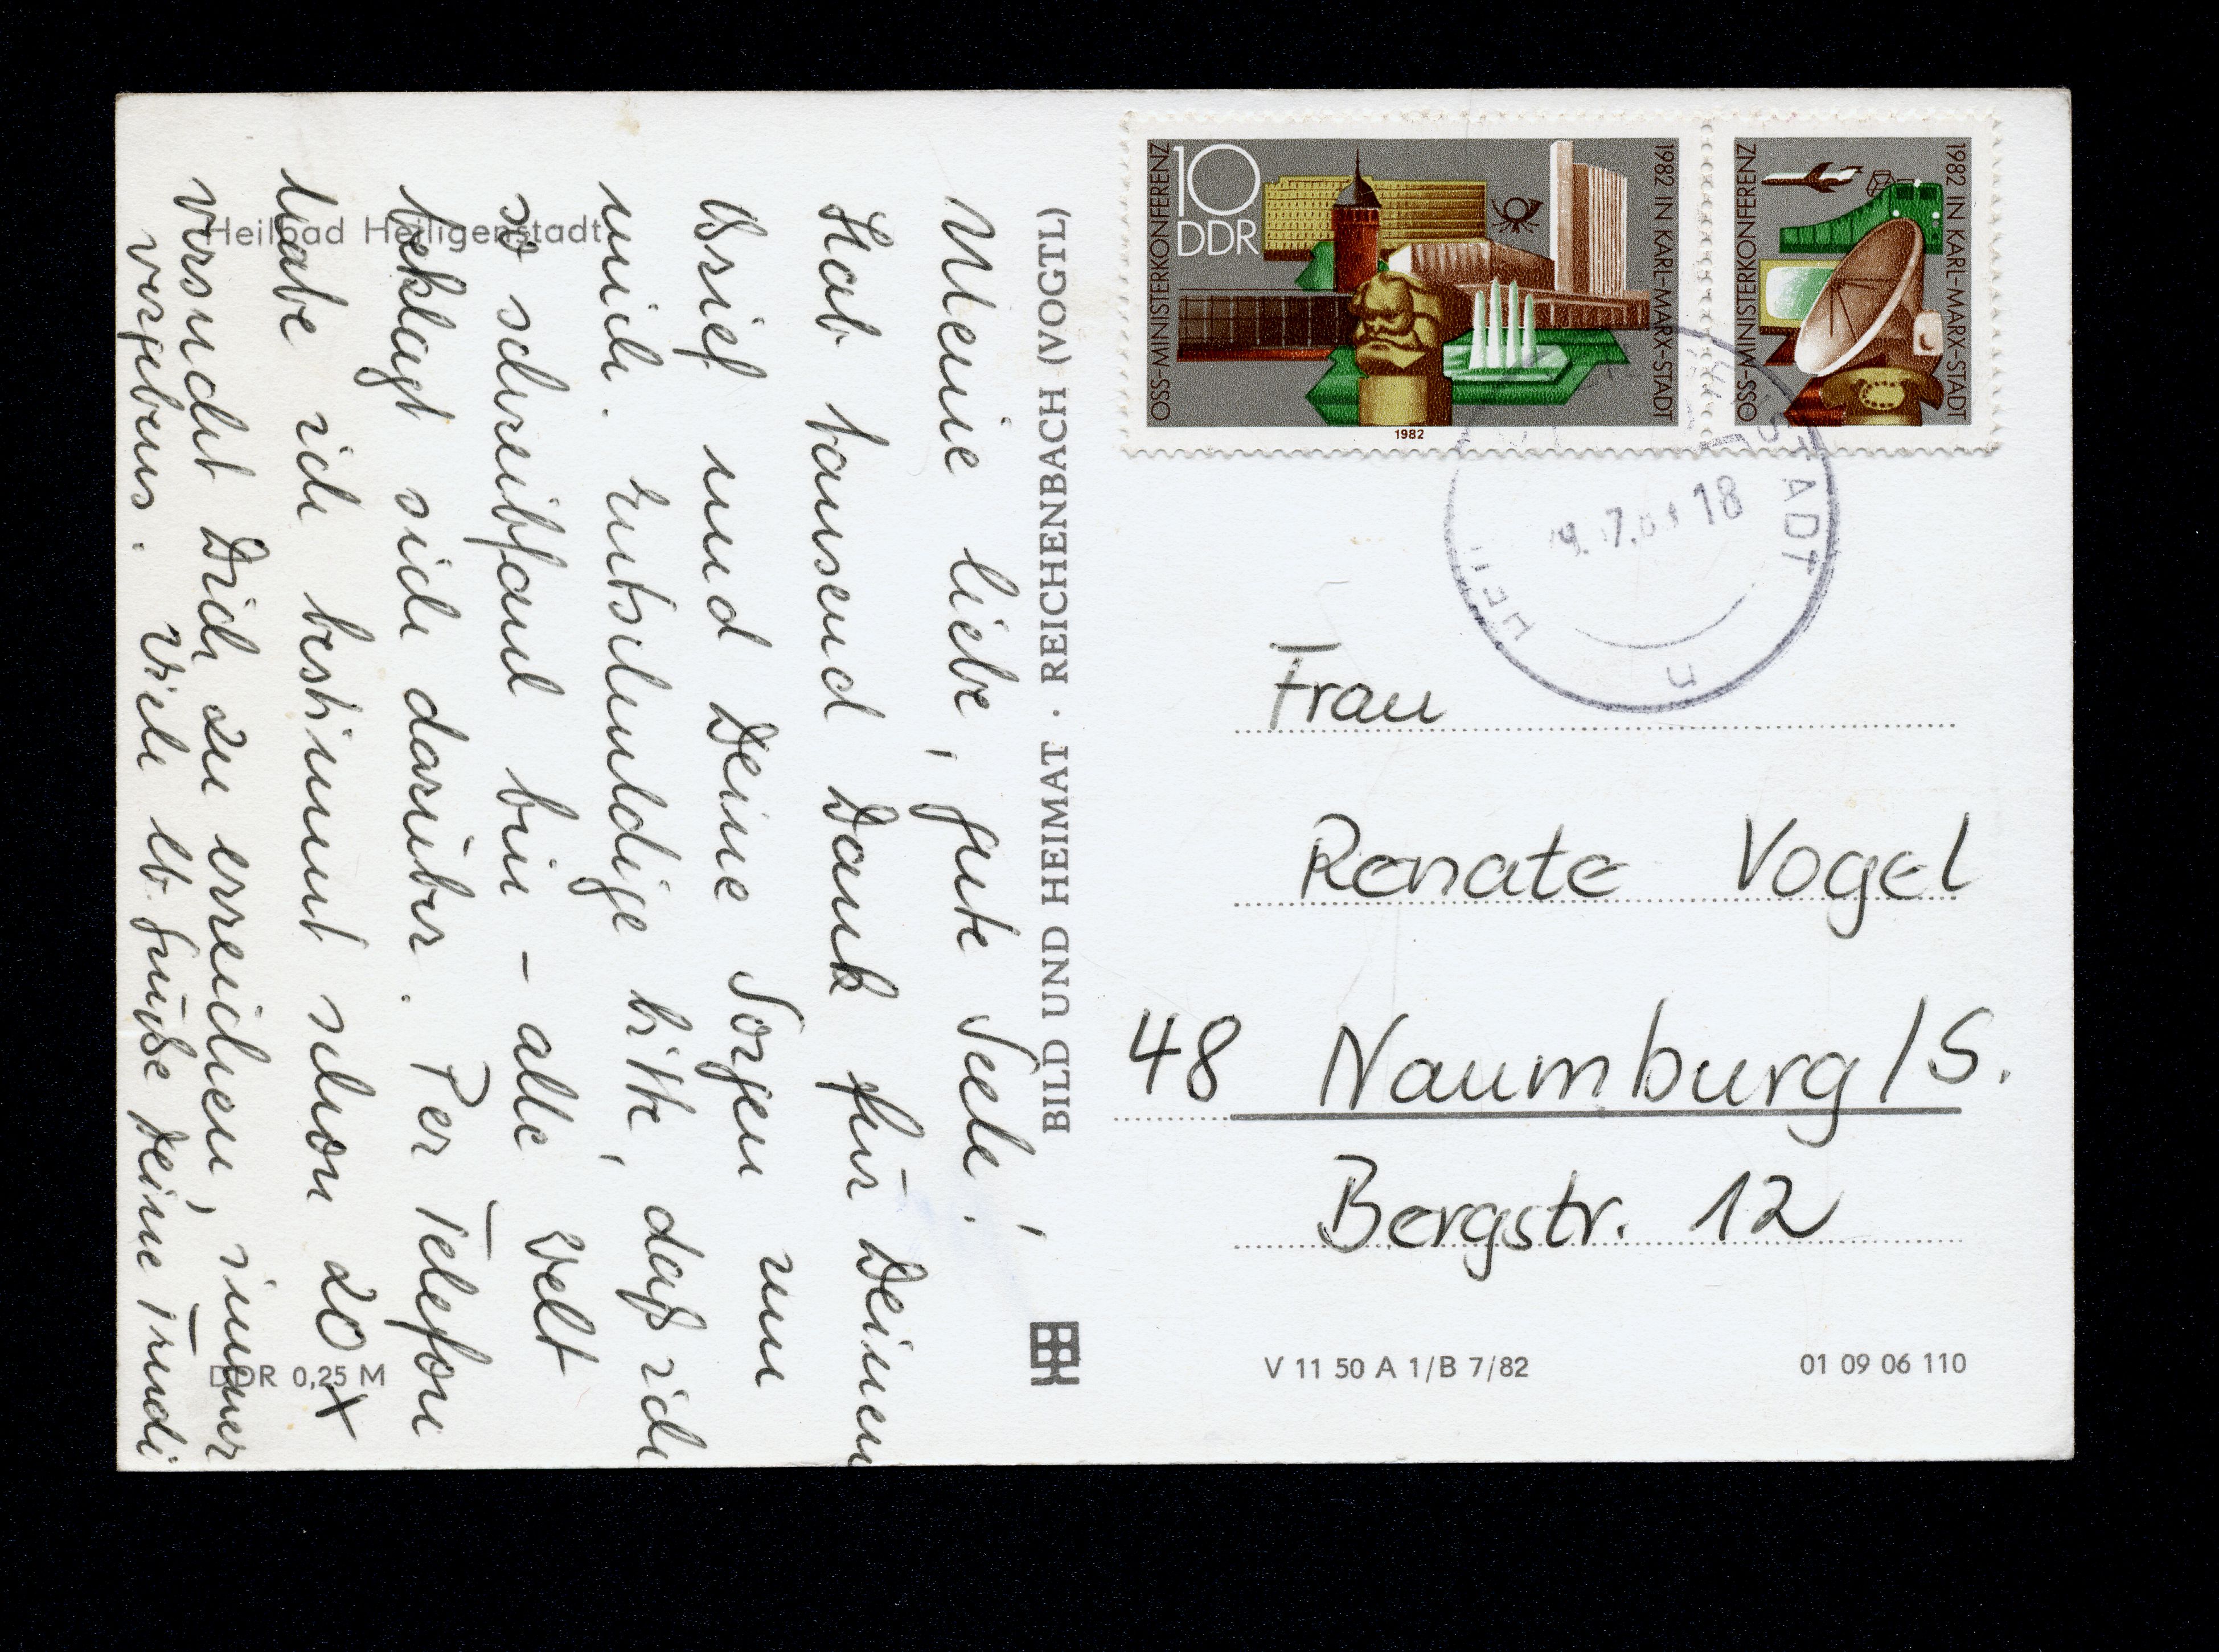 Heilbad Heiligenstadt
Meine liebe, gute Seele!
Hab tausend Dank für Deinen
Brief und Deine Sorgen um
mich. Entschuldige bitte, daß ich
so schreibfaul bin – alle Welt
beklagt sich darüber. Per Telefon
habe ich bestimmt schon 20 x
versucht Dich zu erreichen, immer
vergebens. Viele lb. Grüße Deine Trudi
DDR 0,25 M
BILD UND HEIMAT · REICHENBACH (VOGTL)
10
DDR
OSS-MINISTERKONFERENZ
1982 IN KARL-MARX-STADT
1982
OSS-MINISTERKONFERENZ
1982 IN KARL-MARX-STADT
18
Frau
Renate Vogel
48 Naumburg/S.
Bergstr. 12
V 11 50 A 1/B 7/82
01 09 06 110